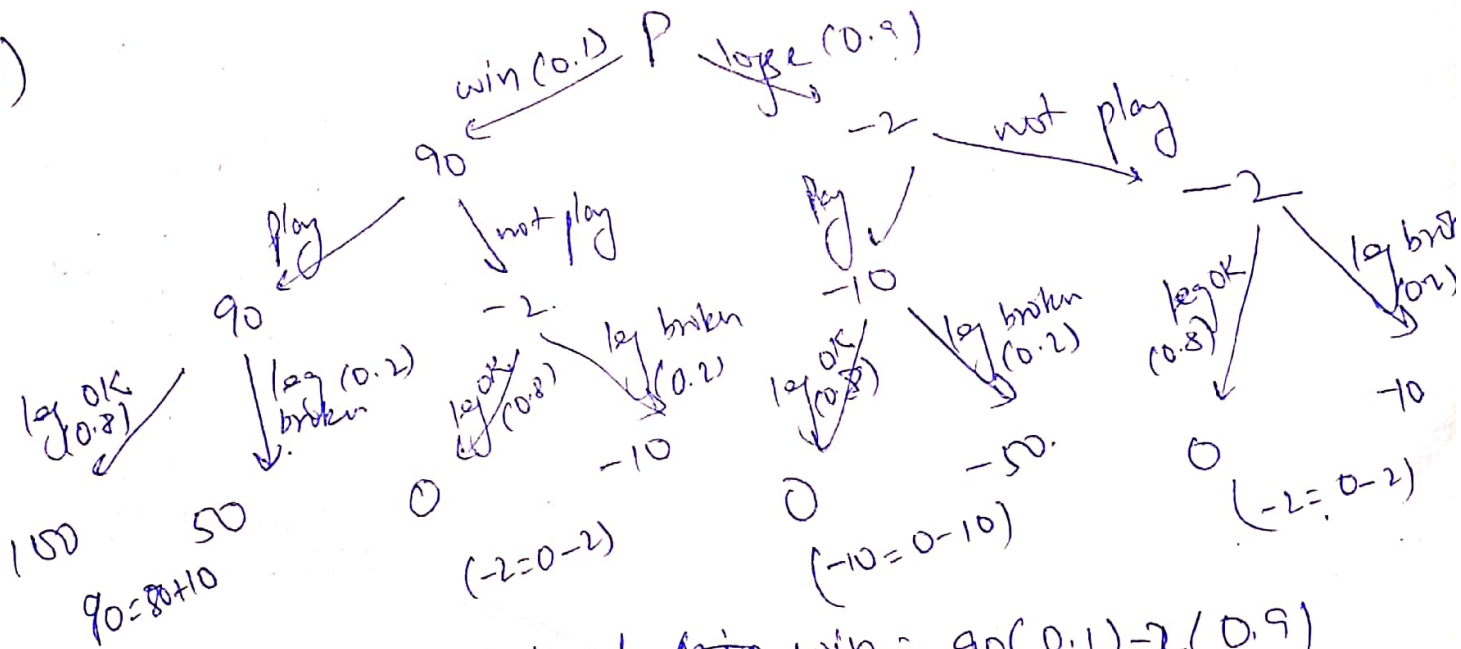 )
win (0.1) P lose (0.9)
90 -2 not play
play not play play -2
90 -2. -10
leg OK (0.8) leg (0.2) broken leg OK (0.8) leg broken (0.2) leg OK (0.8) leg broken (0.2) leg OK (0.8) leg
100 50 0 -10 0 -50. 0 -10
90=80+10 (-2=0-2) (-10=0-10) (-2=0-2)
win = 90(0.1)-2(0.9)